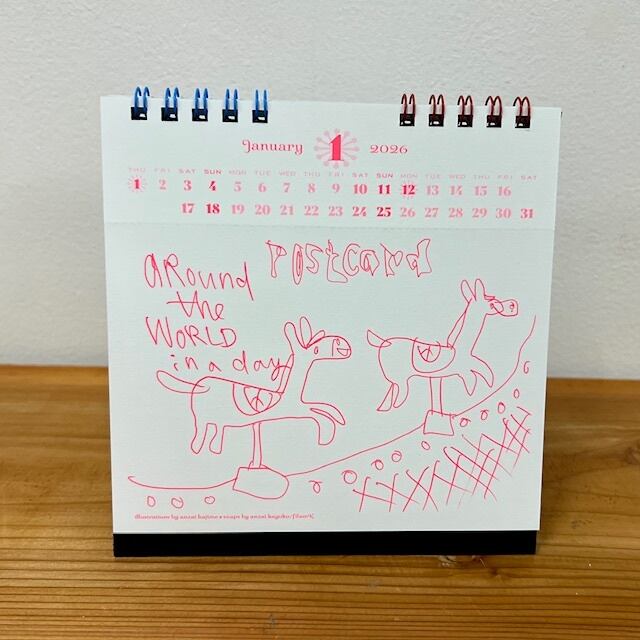 January 1 2026
THU FRI SAT SUN MON TUE WED THU FRI SAT SUN MON TUE WED THU FRI SAT
1 2 3 4 5 6 7 8 9 10 11 12 13 14 15 16
17 18 19 20 21 22 23 24 25 26 27 28 29 30 31
POSTCARD
AROUND
the
WORLD
in a day
illustrations by anzai hajime